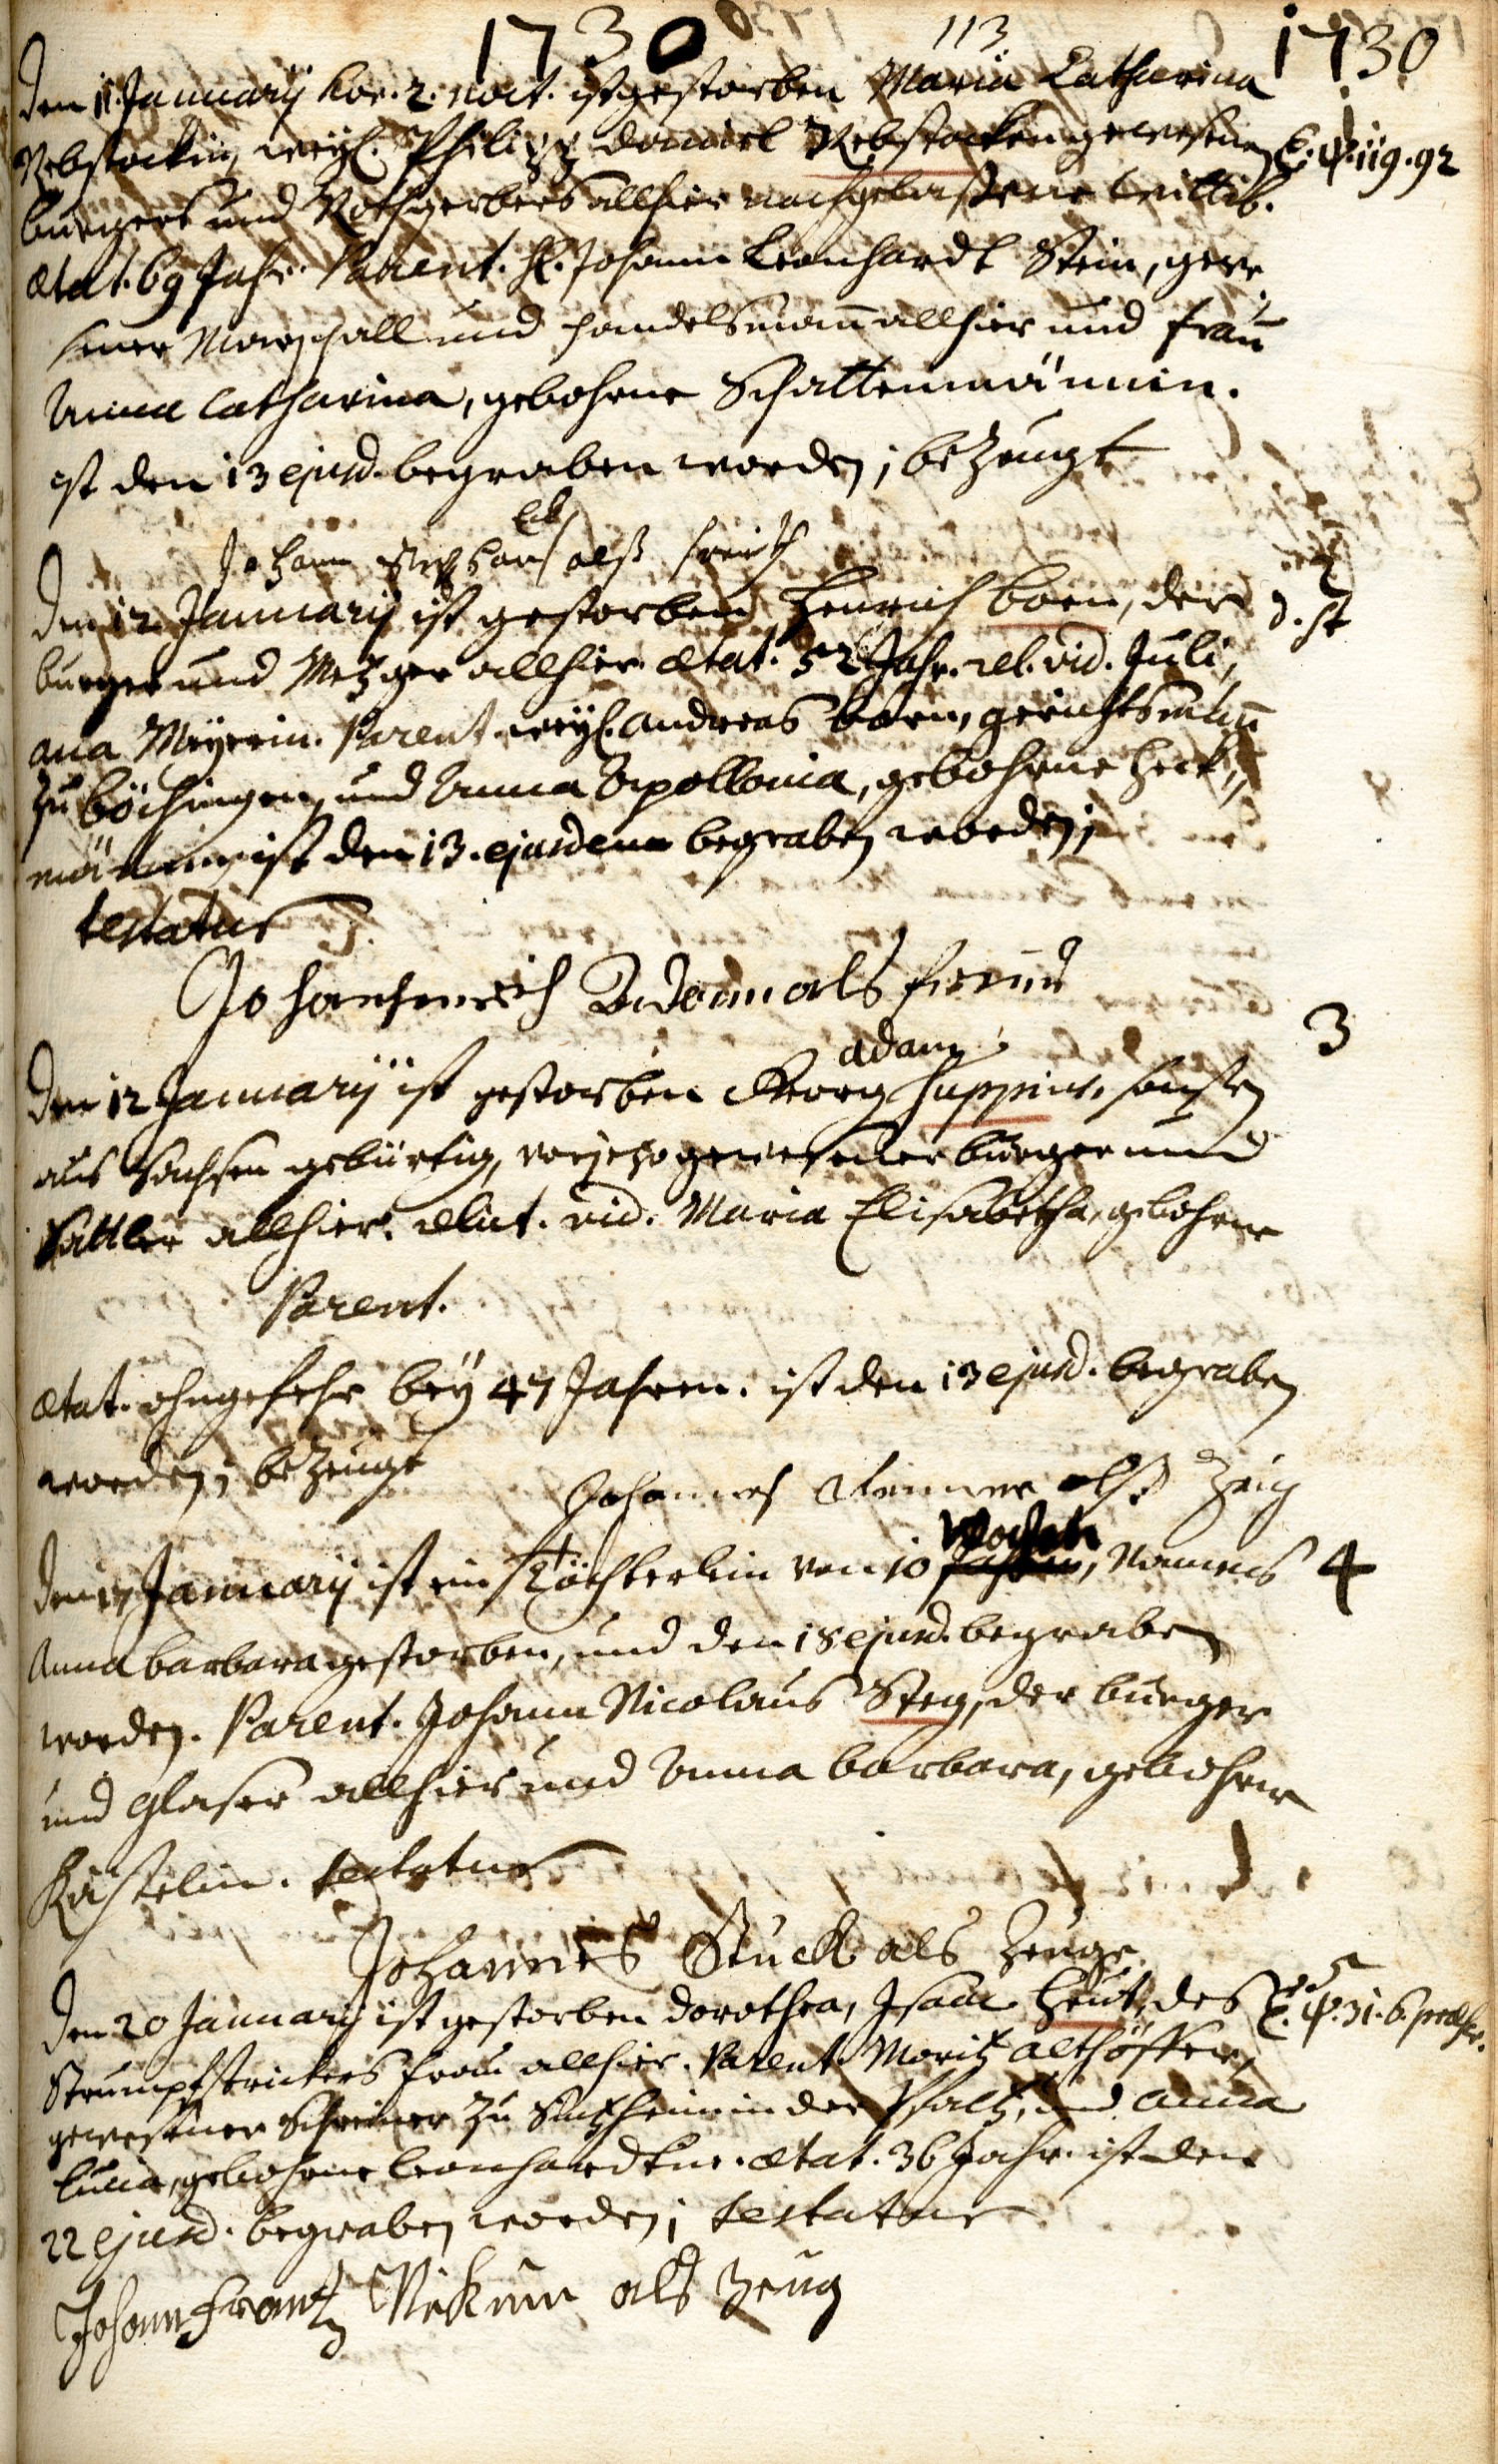 1730 113 1730
Den 11. Januarij hor. 2. noct. ist gestorben Maria Catharina
Rebstockin, weyl. Philipp Daniel Rebstocken gewesenen 119.92
burgers und Rothgerbers allhier nachgelassene Wittib.
ætat. 69 Jahr. Parent. H. Johann Leonhardt Stein, gewe
sener Marschall und handelsmann allhier und Frau
Anna Catharina, gebohrne Schattenmännin.
ist den 13 ejusd. begraben worden; bezeugt
Johann alß freind
2
Den 12 Januarij ist gestorben Henrich born, der d. st
burger und Metzger allhier ætat. 52 Jahr. rel. vid. Juli,
ana Meyerin. Parent. weyl. Andreas born, gerichtsmann
zu böchingen, und Anna Apollonia, gebohrne Heck,,
männin, ist den 13. ejusdem begraben worden;
testatur
Johanhenrich Adam als freund
adam 3
Den 12 Januarij ist gestorben Georg Huppius, sonsten
aus Sachsen gebürtig, gewesener burger und
Sattler allhier. relict. vid. Maria Elisabetha, gebohrne
Parent.
ætat. ohngefehr bey 47 Jahren. ist den 13 ejusd. begraben
worden; bezeugt
Johannes alß Zeug
Wochen
Den 17 Januarij ist ein Töchterlein von 10 Jahren, Namens 4
Anna barbara gestorben, und den 18 ejusd. begraben
worden. Parent. Johann Nicolaus Steg, der burger
und Glaser allhier und Anna barbara, gebohrne
Kästelin. testatur
Johannes Stuck als Zeuge
5
Den 20 Januarij ist gestorben Dorothea, Isaac Heut, des 31.6.
Strumpfstrickers Frau allhier. Parent. Moritz Althöffer,
gewesener Schreiner zu Sintzheim in der Pfaltz, und Anna
Lucia, gebohrne Leonhardtin. ætat. 36 Jahr. ist den
22 ejusd. begraben worden; testatur
Johann Frantz als Zeug